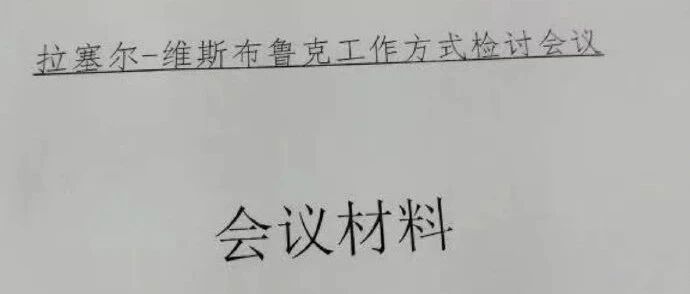 拉塞尔-维斯布鲁克工作方式检讨会议
会议材料